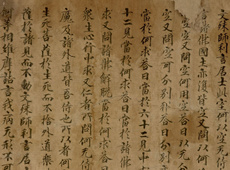 文殊師利言居士此室何以空無侍
詰言諸佛國土亦復皆空又問以何
空又問空何用空答曰以無
空又問空可分別耶答曰分別
空當於何求答曰當於六十二見中
十二見當於何求答曰當於諸佛
求又問諸佛解脫當於何求答曰
眾生心行中求又仁者所問何無侍
魔及諸外道皆吾侍也所以者何
生死菩薩於生死而不捨外道
薩於諸見而不動文殊師利言居士
等相維摩詰言我病無形不可